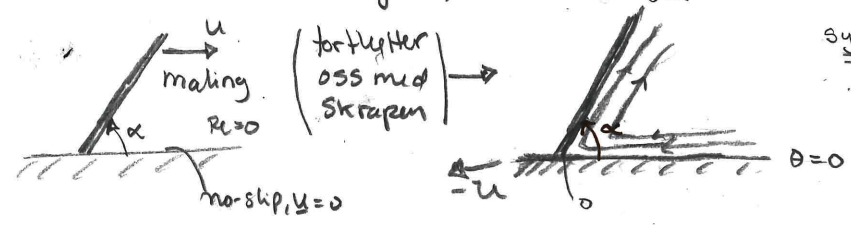 U
maling
α
Re=0
no-slip, u=0
(förflytter
oss med
skrapan)
α
-U
0
θ=0